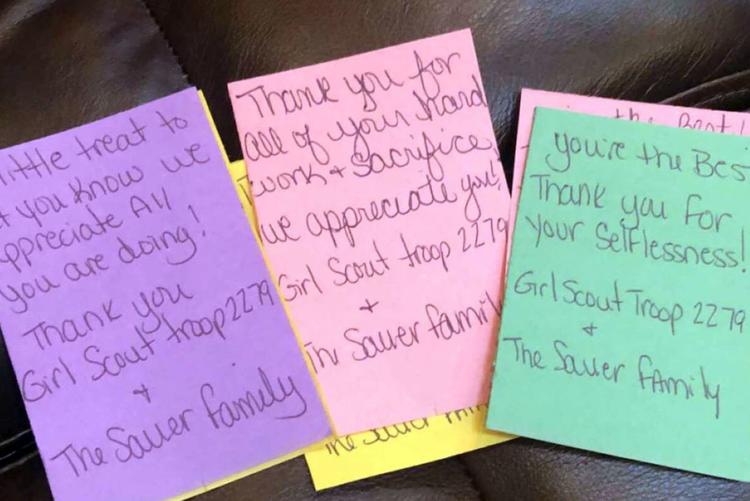 little treat to
you know we
appreciate All
you are doing!
Thank you
Girl Scout troop 2279
+
The Sauer family
Thank you for
all of your hard
work + Sacrifice
we appreciate you!
Girl Scout troop 2279
+
The Sauer family
the Best
you're the Best
Thank you For
your Selflessness!
Girl Scout Troop 2279
+
The Sauer FAmily
The Sauer